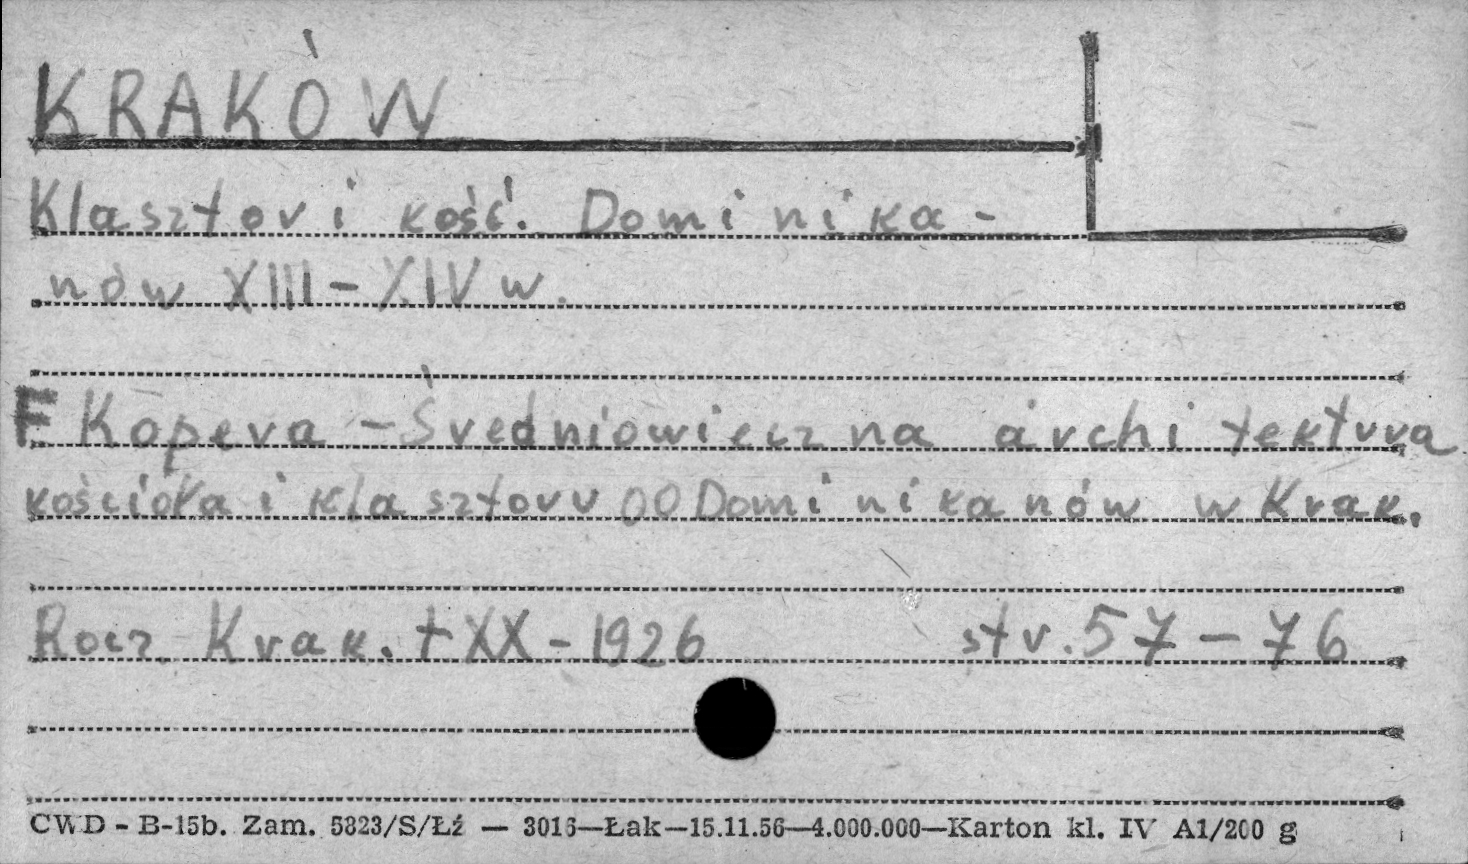 KRAKÓW
Klasztor i kość. Domini ka-
nów XIII-XIV w.
F Kopera - Średniowieczna architektura
kościoła i klasztoru OO Dominikanów w Krak.
Rocz Krak. t XX - 1926 str. 57-76
CWD - B-15b. Zam. 5823/S/Łź — 3016—Łak—15.11.56—4.000.000—Karton kl. IV A1/200 g